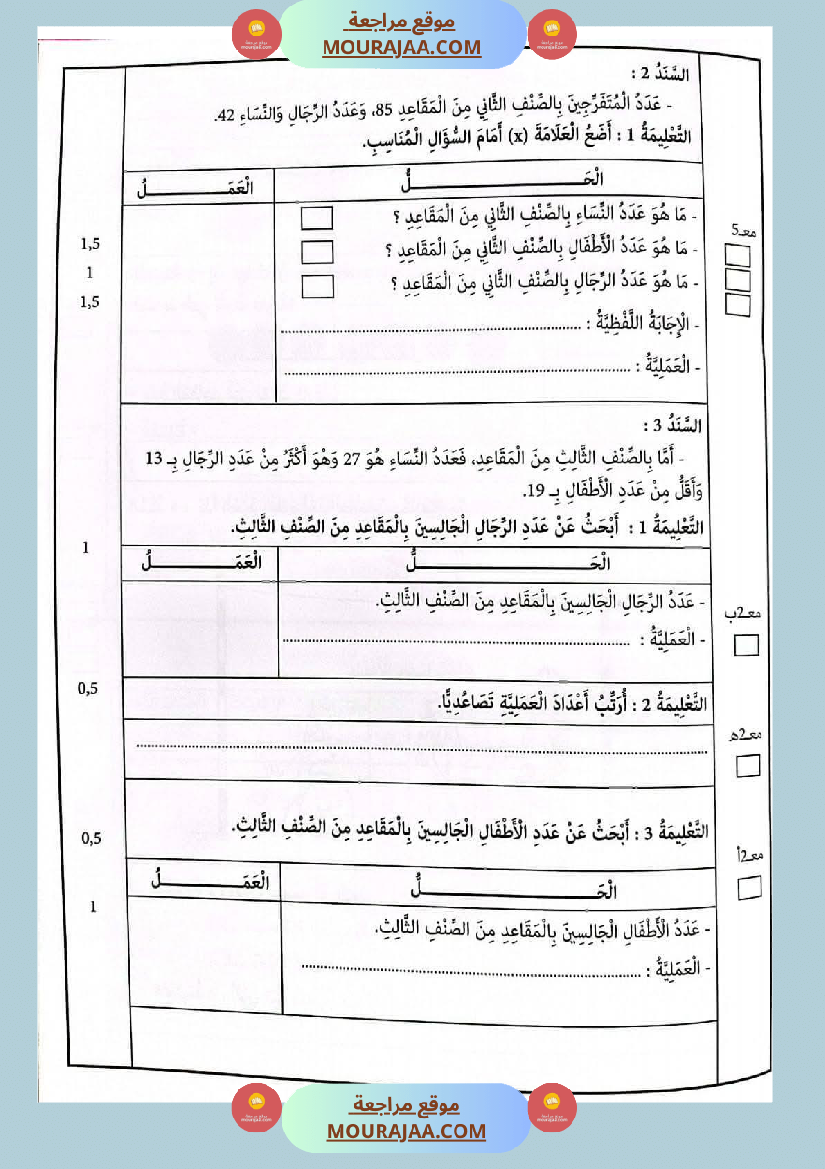 موقع مراجعة
MOURAJAA.COM
السَّنَدُ 2 :
- عَدَدُ الْمُتَفَرِّجِينَ بِالصِّنْفِ الثَّانِي مِنَ الْمَقَاعِدِ 85، وَعَدَدُ الرِّجَالِ وَالنِّسَاءِ 42.
التَّعْلِيمَةُ 1 : أَضَعُ الْعَلَامَةَ (x) أَمَامَ السُّؤَالِ الْمُنَاسِبِ.
الْحَــــــلُّ الْعَمَــــــلُ
- مَا هُوَ عَدَدُ النِّسَاءِ بِالصِّنْفِ الثَّانِي مِنَ الْمَقَاعِدِ ؟
- مَا هُوَ عَدَدُ الْأَطْفَالِ بِالصِّنْفِ الثَّانِي مِنَ الْمَقَاعِدِ ؟
- مَا هُوَ عَدَدُ الرِّجَالِ بِالصِّنْفِ الثَّانِي مِنَ الْمَقَاعِدِ ؟
- الْإِجَابَةُ اللَّفْظِيَّةُ : ......................................
- الْعَمَلِيَّةُ : ......................................
معـ5
1,5
1
1,5
السَّنَدُ 3 :
- أَمَّا بِالصِّنْفِ الثَّالِثِ مِنَ الْمَقَاعِدِ، فَعَدَدُ النِّسَاءِ هُوَ 27 وَهُوَ أَكْثَرُ مِنْ عَدَدِ الرِّجَالِ بِـ 13
وَأَقَلُّ مِنْ عَدَدِ الْأَطْفَالِ بِـ 19.
التَّعْلِيمَةُ 1 : أَبْحَثُ عَنْ عَدَدِ الرِّجَالِ الْجَالِسِينَ بِالْمَقَاعِدِ مِنَ الصِّنْفِ الثَّالِثِ.
1
الْحَــــــلُّ الْعَمَــــــلُ
- عَدَدُ الرِّجَالِ الْجَالِسِينَ بِالْمَقَاعِدِ مِنَ الصِّنْفِ الثَّالِثِ.
معـ2ب
- الْعَمَلِيَّةُ : ......................................
التَّعْلِيمَةُ 2 : أُرَتِّبُ أَعْدَادَ الْعَمَلِيَّةِ تَصَاعُدِيًّا.
0,5
معـ2هـ
......................................
التَّعْلِيمَةُ 3 : أَبْحَثُ عَنْ عَدَدِ الْأَطْفَالِ الْجَالِسِينَ بِالْمَقَاعِدِ مِنَ الصِّنْفِ الثَّالِثِ.
0,5
معـ2أ
الْحَــــــلُّ الْعَمَــــــلُ
1
- عَدَدُ الْأَطْفَالِ الْجَالِسِينَ بِالْمَقَاعِدِ مِنَ الصِّنْفِ الثَّالِثِ.
- الْعَمَلِيَّةُ : ......................................
موقع مراجعة
MOURAJAA.COM